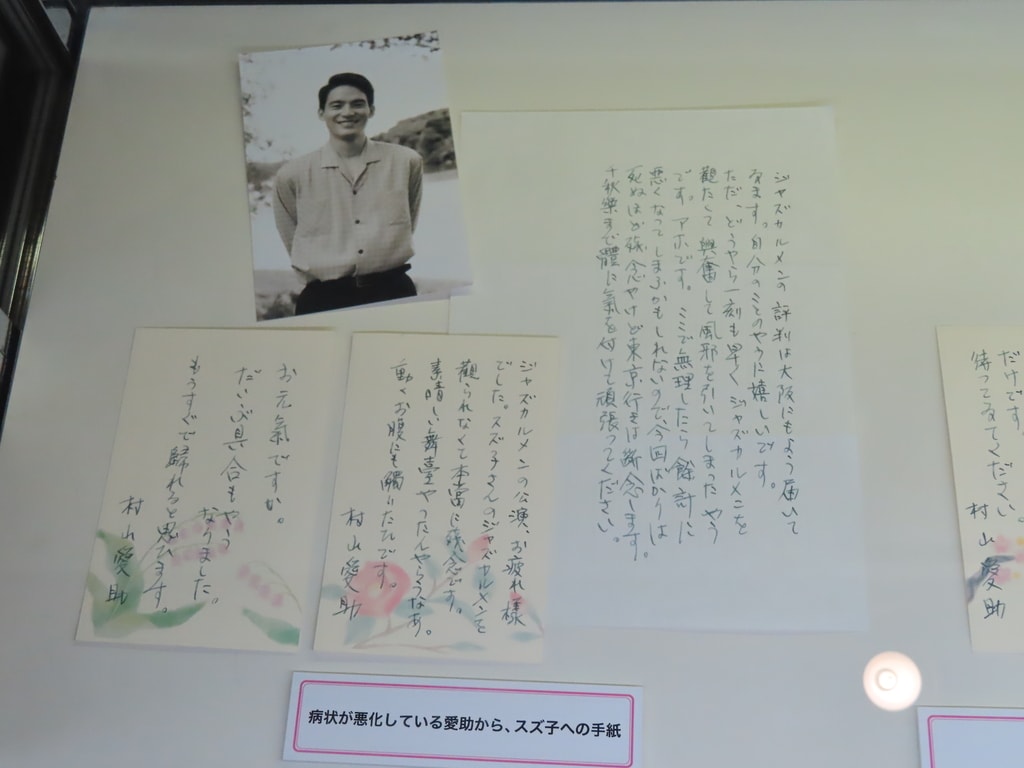 ジャズカルメンの評判は大阪にもよう届いて
ゐます。自分のことのやうに嬉しいです。
ただ、どうやら一刻も早く ジャズカルメンを
観たくて 興奮して 風邪を引いてしまったやう
です。アホです。ここで無理したら餘計に
悪くなってしまふかもしれないので今回ばかりは
死ぬほど残念やけど東京行きは断念します。
千秋楽まで體に氣を付けて頑張ってください。
ジャズカルメンの公演、お疲れ様
でした。スズ子さんのジャズカルメンを
観られなくて本當に残念です。
素晴しい舞臺やったんやらうなあ。
動くお腹にも觸りたいです。
村山愛助
お元氣ですか。
だいぶ具合もやう
なりました。
もうすぐで歸れると思ひます。
村山愛助
だけです。
待ってゐてください。
村山愛助
病状が悪化している愛助から、スズ子への手紙